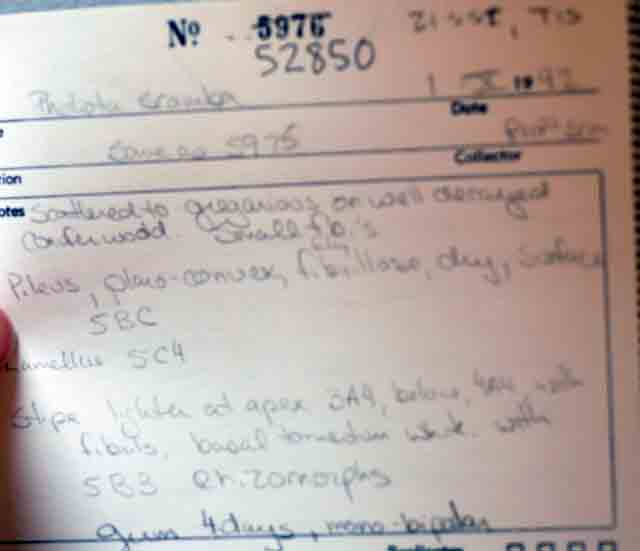 Nº 5976
52850
1 IX 1992
Date
Same as 5975
Collector
ion
otes Scattered to gregarious on well decayed
conifer wood. Small fb.'s
Pileus, plano-convex, fibrillose, dry, surface
5BC
Lamellae 5C4
Stipe lighter at apex 3A4, below, with
fibrils, basal tomentum white. with
5B3 rhizomorphs
germ 4 days, mono-bipolar